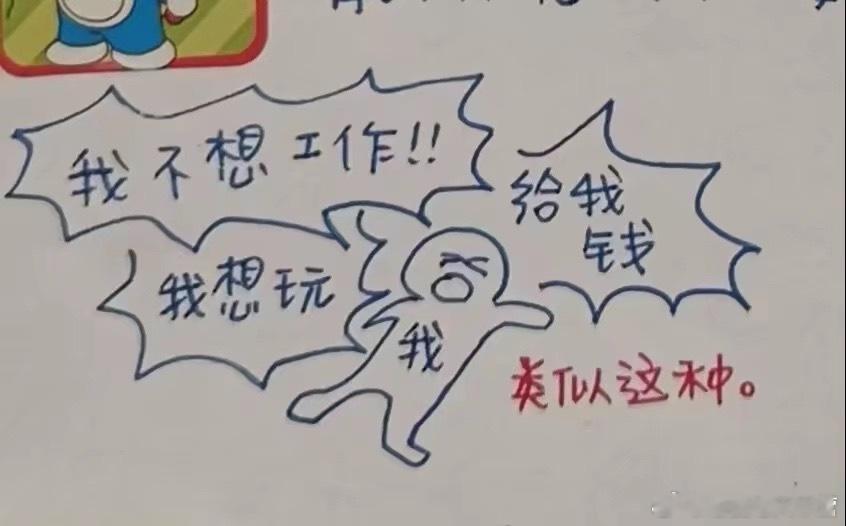 我不想工作!!
给我
钱
我想玩
我
类似这种。